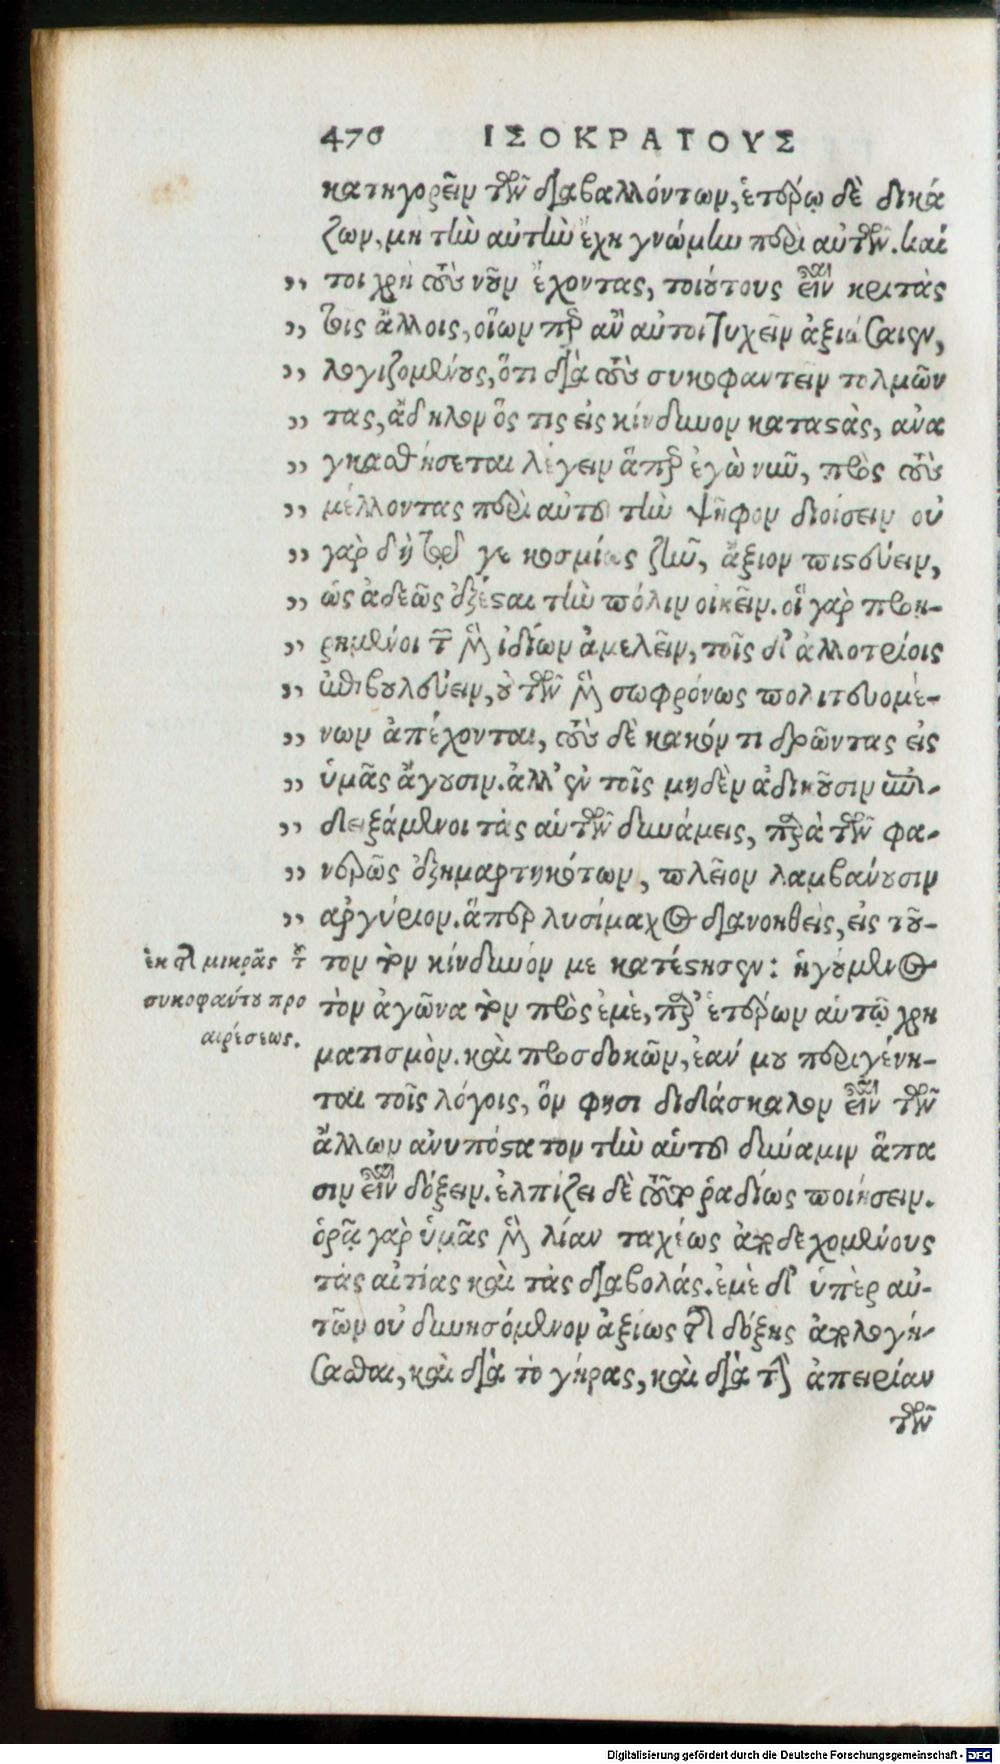 470 ΙΣΟΚΡΑΤΟΥΣ
κατηγορεῖν τῶν διαβαλλόντων, ἑτέρῳ δὲ δικά
ζων, μὴ τὴν αὐτὴν ἔχῃ γνώμην περὶ αὐτῶν. καί
,, τοι χρὴ τοὺς νοῦν ἔχοντας, τοιούτους εἶναι κριτὰς
,, τοῖς ἄλλοις, οἵων περ ἂν αὐτοὶ τυχεῖν ἀξιώσαιεν,
,, λογιζομένους, ὅτι διὰ τοὺς συκοφαντεῖν τολμῶν
,, τας, ἄδηλον ὅς τις εἰς κίνδυνον καταστὰς, ἀνα
,, γκασθήσεται λέγειν ἅπερ ἐγὼ νῦν, πρὸς τοὺς
,, μέλλοντας περὶ αὐτοῦ τὴν ψῆφον διοίσειν οὐ
,, γὰρ δὴ τῷ γε κοσμίως ζῆν, ἄξιον πιστεύειν,
,, ὡς ἀδεῶς ἐξέσται τὴν πόλιν οἰκεῖν. οἱ γὰρ προῃ-
,, ρημένοι τῶν μὲν ἰδίων ἀμελεῖν, τοῖς δ' ἀλλοτρίοις
,, ἐπιβουλεύειν, οὐ τῶν μὲν σωφρόνως πολιτευομέ-
,, νων ἀπέχονται, τοὺς δὲ κακόν τι δρῶντας εἰς
,, ὑμᾶς ἄγουσιν. ἀλλ' ἐν τοῖς μηδὲν ἀδικοῦσιν ἐπι-
,, δειξάμενοι τὰς αὑτῶν δυνάμεις, παρὰ τῶν φα-
,, νερῶς ἐξημαρτηκότων, πλεῖον λαμβάνουσιν
,, ἀργύριον. ἅπερ λυσίμαχος διανοηθεὶς, εἰς τοῦ-
τον τὸν κίνδυνόν με κατέστησεν: ἡγούμενος
τὸν ἀγῶνα τὸν πρὸς ἐμὲ, παρ' ἑτέρων αὑτῷ χρη
ματισμὸν. καὶ προσδοκῶν, ἐάν μου περιγένη-
ται τοῖς λόγοις, ὅν φησι διδάσκαλον εἶναι τῶν
ἄλλων ἀνυπόστατον τὴν αὑτοῦ δύναμιν ἅπα
σιν εἶναι δόξειν. ἐλπίζει δὲ τοῦτο ῥᾳδίως ποιήσειν.
ὁρᾷ γὰρ ὑμᾶς μὲν λίαν ταχέως ἀποδεχομένους
τὰς αἰτίας καὶ τὰς διαβολάς. ἐμὲ δ' ὑπὲρ αὐ-
τῶν οὐ δυνησόμενον ἀξίως τῆς δόξης ἀπολογή-
σασθαι, καὶ διὰ τὸ γῆρας, καὶ διὰ τὴν ἀπειρίαν
τῶν
ἐκ τῆς μικρᾶς τοῦ
συκοφάντου προ
αιρέσεως.
Digitalisierung gefördert durch die Deutsche Forschungsgemeinschaft - DFG